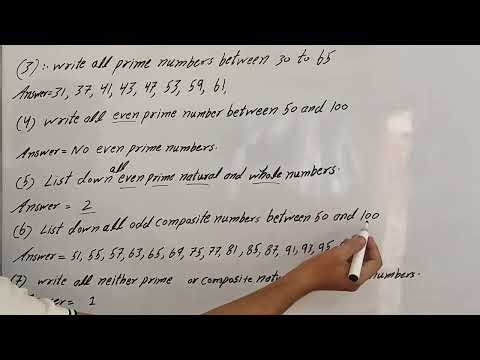 (3) :- write all prime numbers between 30 to 65
Answer= 31, 37, 41, 43, 47, 53, 59, 61,
(4) write all even prime number between 50 and 100
Answer = No even prime numbers.
all
(5) List down even prime natural and whole numbers.
Answer = 2
(6) List down all odd composite numbers between 50 and 100
Answer = 51, 55, 57, 63, 65, 69, 75, 77, 81, 85, 87, 91, 93, 95,
(7) write all neither prime or composite numbers.
Answer = 1